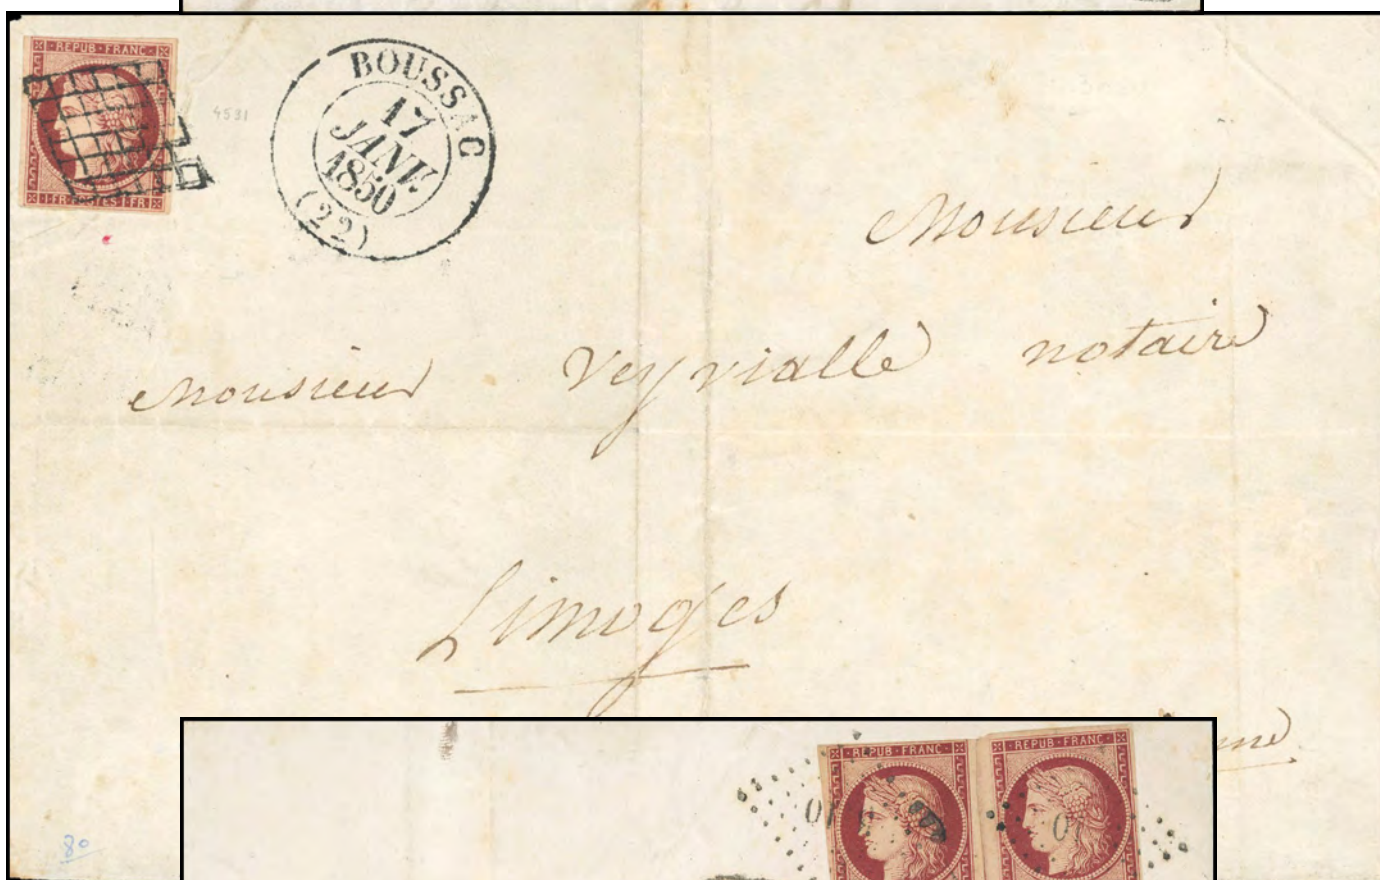 REPUB·FRANC·
1·FR·POSTES·1·FR
4531
BOUSSAC
17
JANV.
1850
(22)
Monsieur
Monsieur Veyvialle notaire
Limoges
REPUB·FRANC·
REPUB·FRANC·